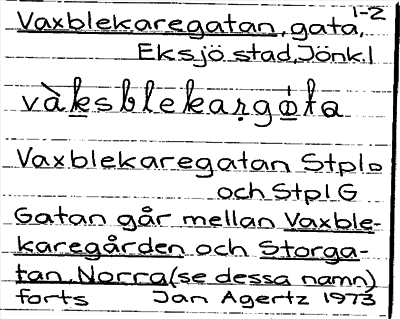 1-2
Vaxblekaregatan, gata,
Eksjö stad, Jönk.l
vàksblekaṛgo̲̍ta
Vaxblekaregatan Stpl D
och Stpl G
Gatan går mellan Vaxble-
karegården och Storga-
tan, Norra (se dessa namn)
forts Jan Agertz 1973